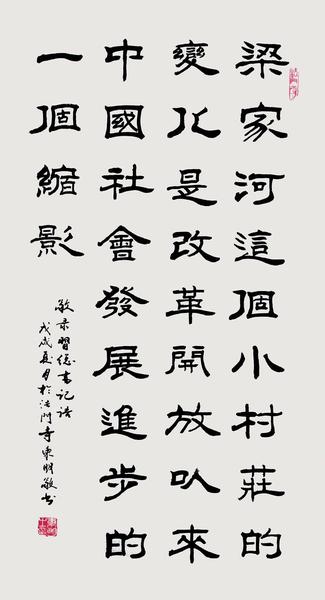 梁家河這個小村莊的
變化是改革開放以來
中國社會發展進步的
一個縮影
敬录習總書記語
戊戌夏月於法門寺東明敬书